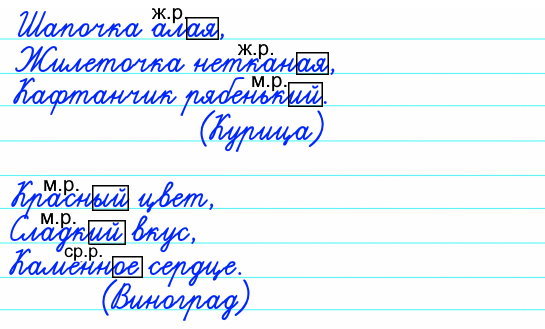 ж.р.
Шапочка алая,
ж.р.
Жилеточка нетканая,
м.р.
Кафтанчик рябенький.
(Курица)
м.р.
Красный цвет,
м.р.
Сладкий вкус,
ср.р.
Каменное сердце.
(Виноград)